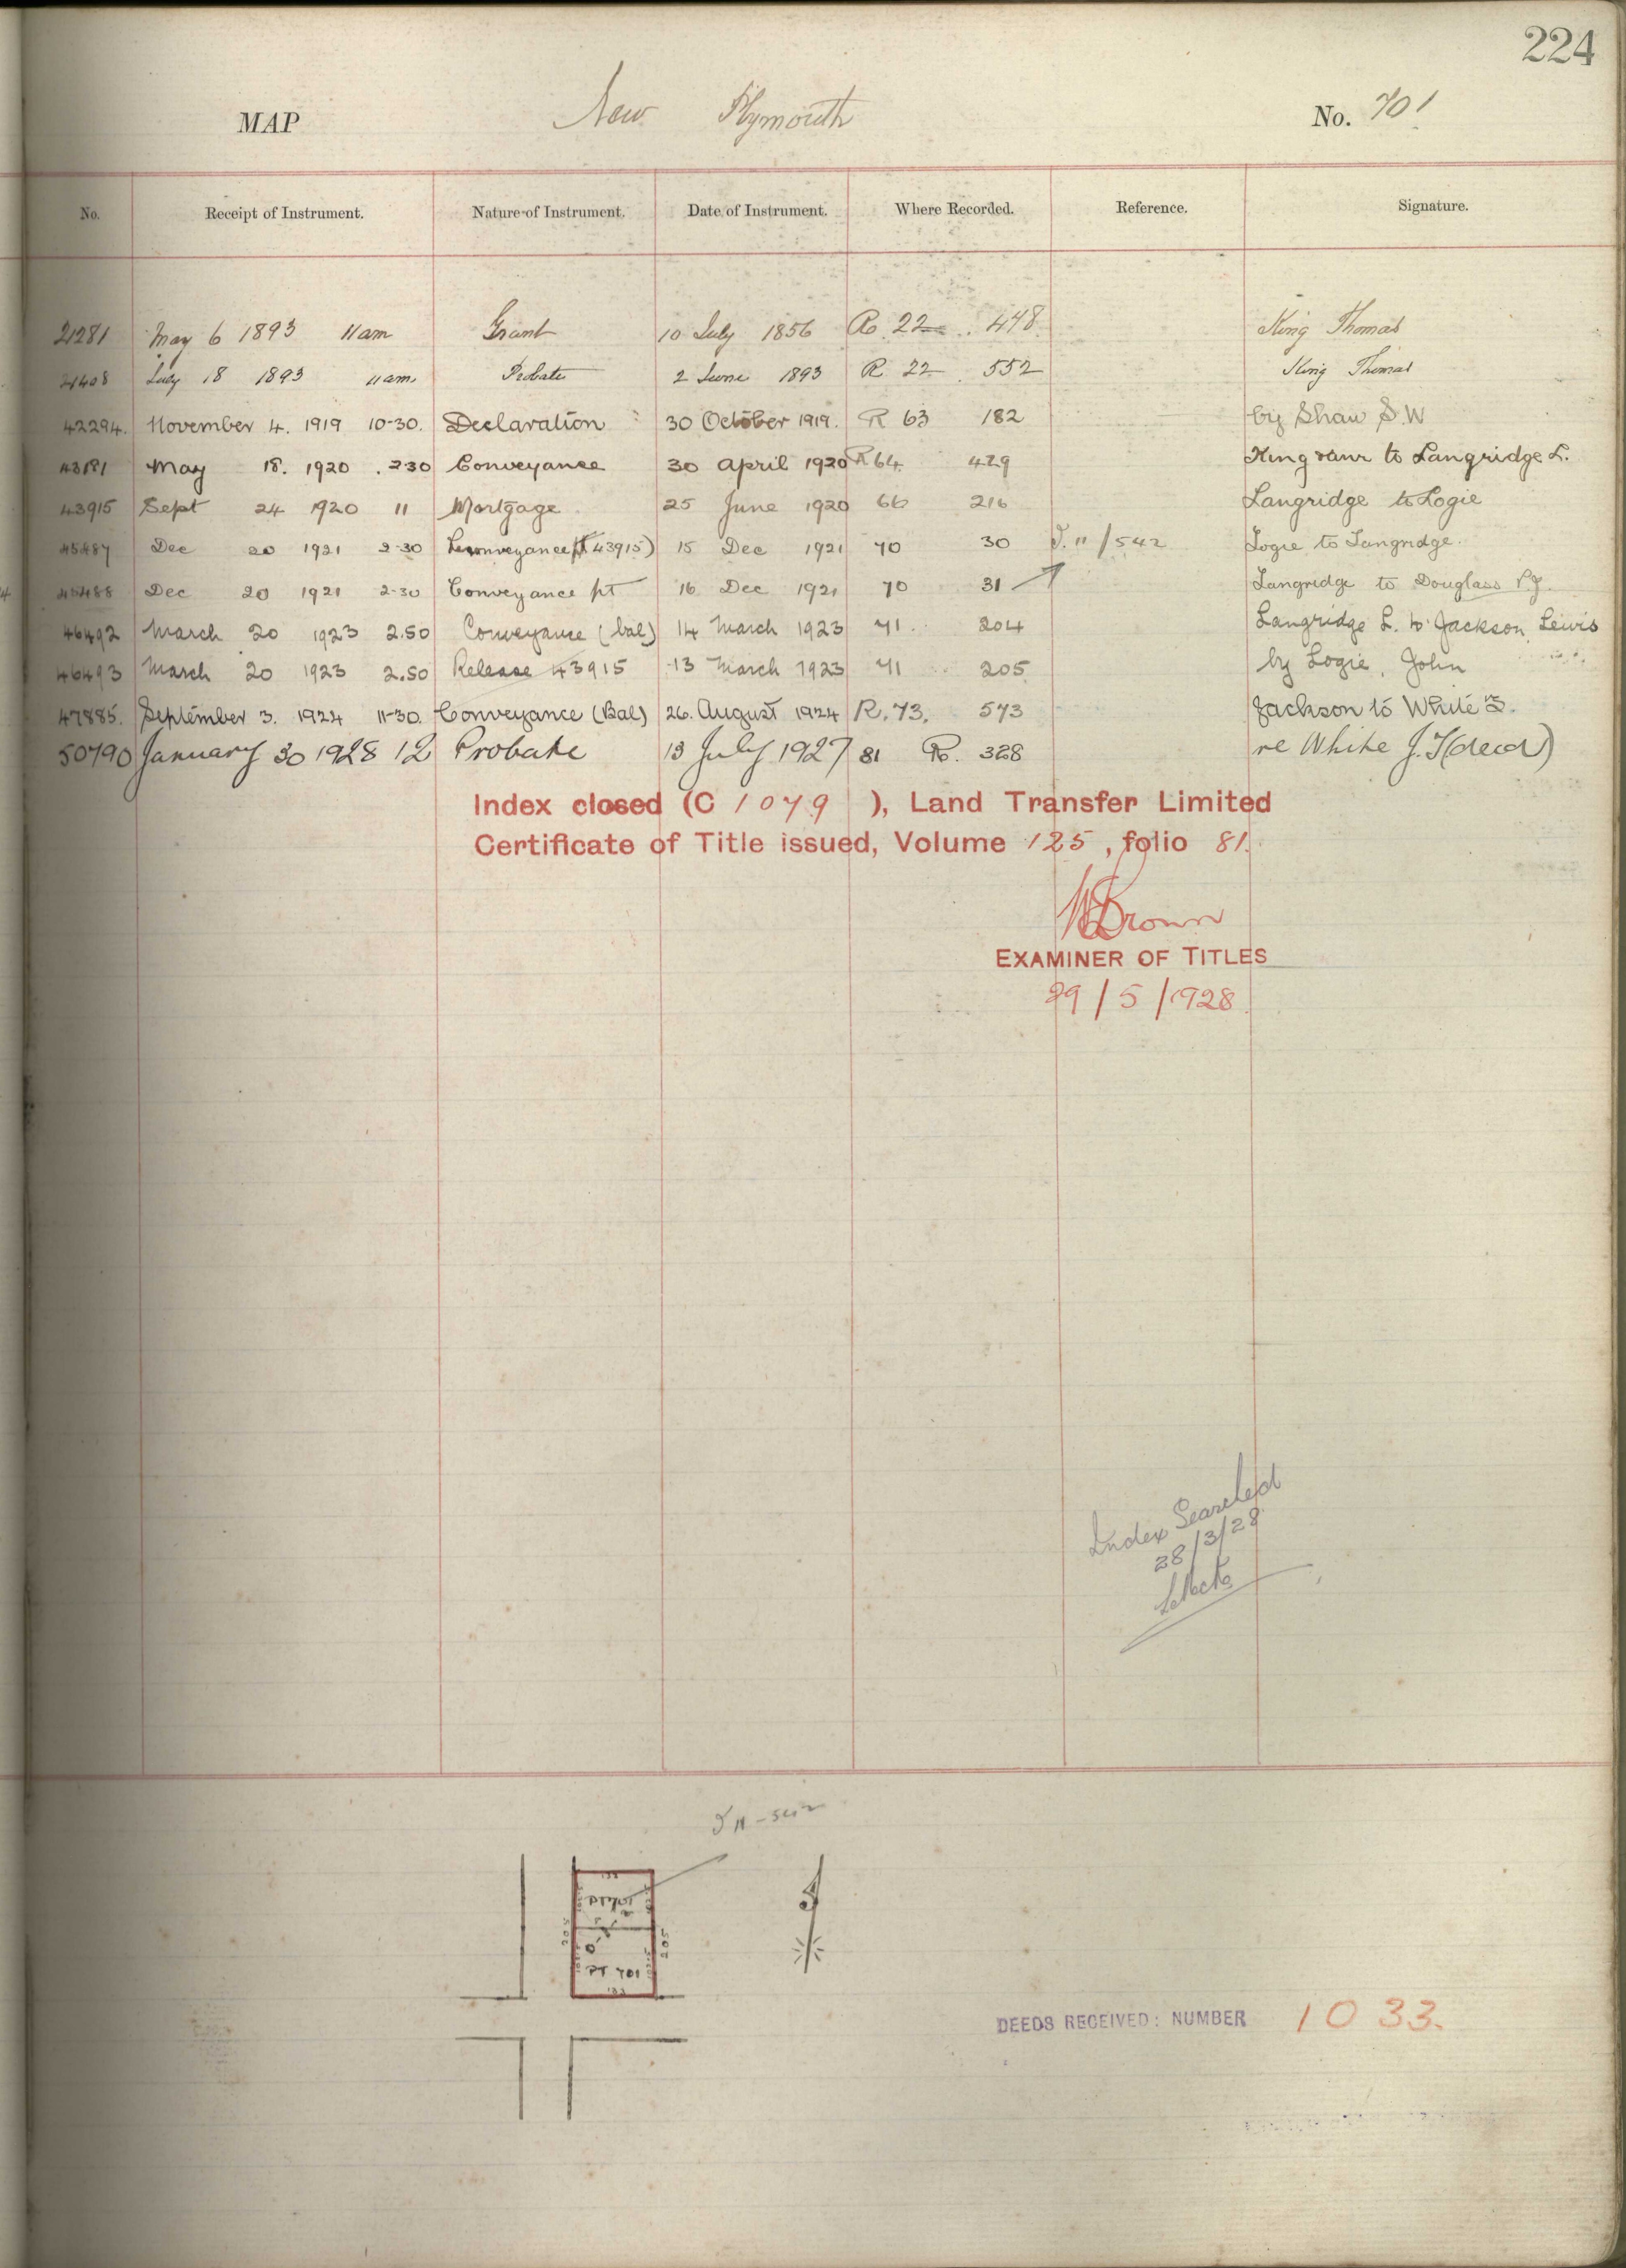 224
MAP New Plymouth No. 701
No. Receipt of Instrument. Nature of Instrument. Date of Instrument. Where Recorded. Reference. Signature.
21281 May 6 1893 11am Grant 10 July 1856 R. 22 448 King Thomas
21408 July 18 1893 11am Probate 2 June 1893 R 22 552 King Thomas
42294. November 4. 1919 10-30. Declaration 30 October 1919. R 63 182 by Shaw S.W
43181 May 18. 1920 . 2-30 Conveyance 30 April 1920 R 64 429 King to Langridge L.
43915 Sept 24 1920 11 Mortgage 25 June 1920 66 216 Langridge to Logie
45487 Dec 20 1921 2-30 Reconveyance (pt 43915) 15 Dec 1921 70 30 J. 11/542 Logie to Langridge.
45488 Dec 20 1921 2-30 Conveyance pt 16 Dec 1921 70 31 Langridge to Douglass P.J.
46492 March 20 1923 2.50 Conveyance (bal) 14 March 1923 71 204 Langridge L. to Jackson, Lewis
46493 March 20 1923 2.50 Release 43915 13 March 1923 71 205 by Logie, John
47885. September 3. 1924 11-30. Conveyance (Bal) 26. August 1924 R. 73. 573 Jackson to White
50790 January 30 1928 12 Probate 13 July 1927 81 R. 328 re White J. T (decd)
Index closed (C 1079 ), Land Transfer Limited
Certificate of Title issued, Volume 125, folio 81.
Brown
EXAMINER OF TITLES
29/5/1928
Index Searched
28/3/28
J 11-542
PT 701
PT 701
DEEDS RECEIVED: NUMBER 1033.